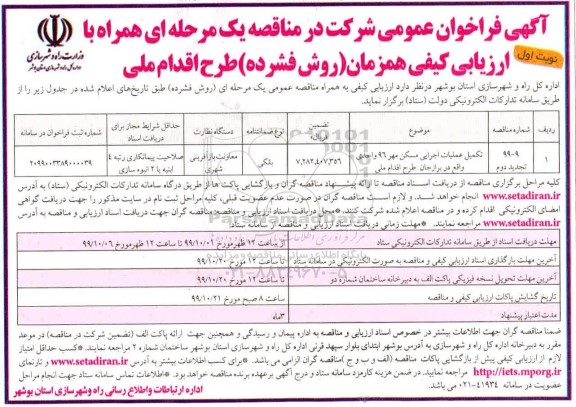 آگهی فراخوان عمومی شرکت در مناقصه یک مرحله ای همراه با
ارزیابی کیفی همزمان (روش فشرده) طرح اقدام ملی
نوبت اول
وزارت راه و شهرسازی
اداره کل راه و شهرسازی استان بوشهر
اداره کل راه و شهرسازی استان بوشهر درنظر دارد ارزیابی کیفی به همراه مناقصه عمومی یک مرحله ای (روش فشرده) طبق تاریخ‌های اعلام شده در جدول زیر را از
طریق سامانه تدارکات الکترونیکی دولت (ستاد) برگزار نماید.
ردیف شماره مناقصه موضوع تضمین (ریال) نوع ضمانتنامه دستگاه نظارت حداقل شرایط مجاز برای دریافت اسناد شماره ثبت فراخوان در سامانه
۱ ۹۹-۹ تجدید دوم تکمیل عملیات اجرایی مسکن مهر ۹۶ واحدی واقع در برازجان طرح اقدام ملی ۷,۲۸۲,۴۰۷,۳۵۶ بانکی معاونت بازآفرینی شهری صلاحیت پیمانکاری رتبه ۴ ابنیه یا ۲ انبوه سازی ۲۰۹۹۰۰۳۳۸۹۰۰۰۰۳۹
کلیه مراحل برگزاری مناقصه از دریافت اسناد مناقصه تا ارائه پیشنهاد مناقصه گران و بازگشایی پاکت ها از طریق درگاه سامانه تدارکات الکترونیکی (ستاد) به آدرس
www.setadiran.ir انجام خواهد شد. و لازم است مناقصه گران در صورت عدم عضویت قبلی، کلیه مراحل ثبت نام در سایت مذکور را جهت دریافت گواهی
امضای الکترونیکی اقدام کرده و در مناقصه اعلام شده شرکت کنند. *محل دریافت اسناد ارزیابی و مناقصه: مناقصه گران جهت دریافت اسناد ارزیابی و مناقصه به آدرس
www.setadiran.ir مراجعه نمایند. *مهلت زمانی دریافت اسناد ارزیابی و مناقصه از سامانه ستاد:
مهلت دریافت اسناد از طریق سامانه تدارکات الکترونیکی ستاد از ساعت ۱۲ ظهرمورخ ۹۹/۱۰/۰۱ تا ساعت ۱۲ ظهرمورخ ۹۹/۱۰/۰۶
آخرین مهلت بارگذاری اسناد ارزیابی کیفی و مناقصه به صورت الکترونیکی در سامانه ستاد تا ساعت ۱۲ مورخ ۹۹/۱۰/۲۰
آخرین مهلت تحویل نسخه فیزیکی پاکت الف به دبیرخانه ساختمان شماره دو تا ساعت ۱۲ مورخ ۹۹/۱۰/۲۰
تاریخ گشایش پاکات ارزیابی کیفی و مناقصه ساعت ۸ صبح مورخ ۹۹/۱۰/۲۱
مدت اعتبار پیشنهاد ۳ماه
ضمنا مناقصه گران جهت اطلاعات بیشتر در خصوص اسناد ارزیابی و مناقصه به اداره پیمان و رسیدگی و همچنین جهت ارائه پاکت الف (تضمین شرکت در مناقصه) در موعد
مقرر به دبیرخانه اداره کل راه و شهرسازی به آدرس بوشهر ابتدای بلوار سپهد قرنی اداره کل راه و شهرسازی استان بوشهر ساختمان شماره ۲ مراجعه نمایند. *کسب حداقل امتیاز
لازم از ارزیابی کیفی پیش از بازگشایی پاکات مناقصه (الف و ب و ج) مناقصه گران الزام می باشد. *برای کسب اطلاعات بیشتر به آدرس www.setadiran.ir و تارنمای
http://iets.mporg.ir مراجعه نمایید. در ضمن هزینه کارمزد سامانه ستاد و درج آگهی برعهده برنده مناقصه خواهد بود. *اطلاعات تماس سامانه ستاد جهت انجام مراحل
عضویت در سامانه ۴۱۹۳۴-۰۲۱ می باشد.
اداره ارتباطات و اطلاع رسانی راه و شهرسازی استان بوشهر